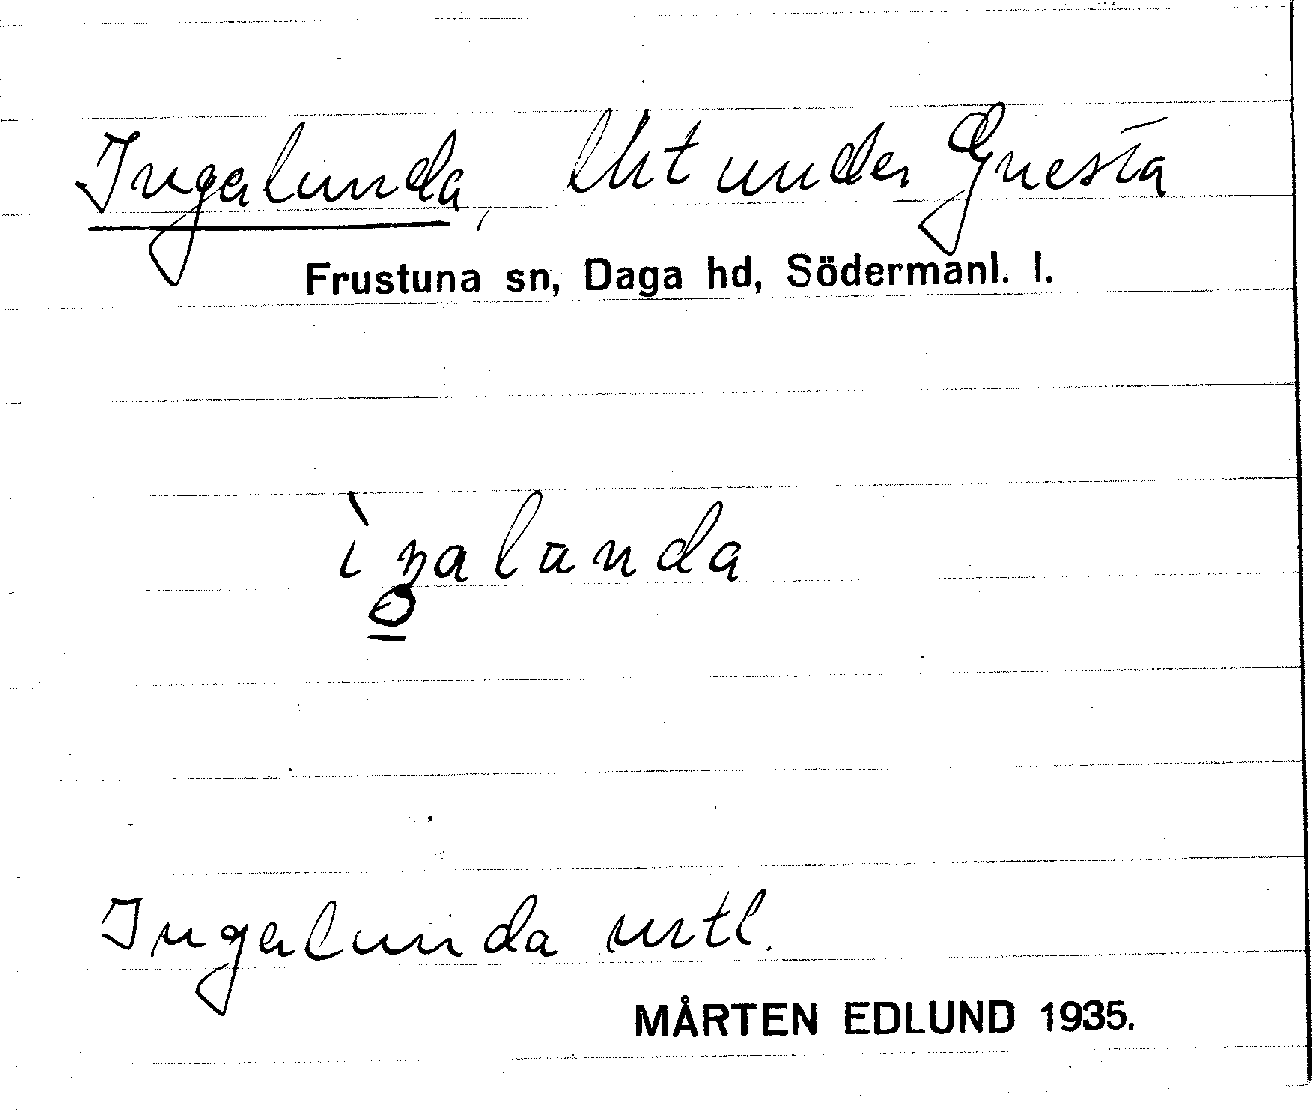 Ingalunda, lht under Gnesta
Frustuna sn, Daga hd, Södermanl. l.
ìŋalunda
Ingalunda urtl.
MÅRTEN EDLUND 1935.